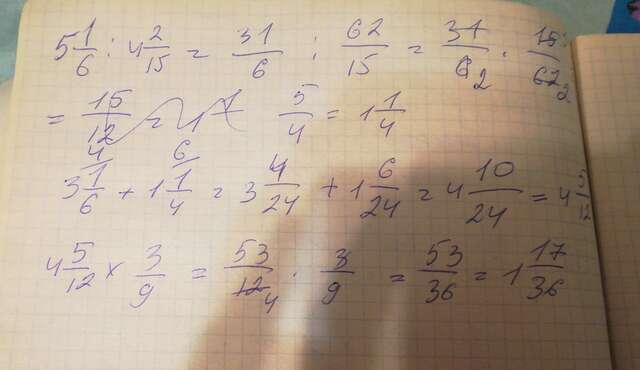 5 1/6 : 4 2/15 = 31/6 : 62/15 = 31/6 2 · 15/62 2
= 15/12 = 1 1 5/4 = 1 1/4
4 6
3 1/6 + 1 1/4 = 3 4/24 + 1 6/24 = 4 10/24 = 4 5/12
4 5/12 × 3/9 = 53/12 4 · 3/9 = 53/36 = 1 17/36